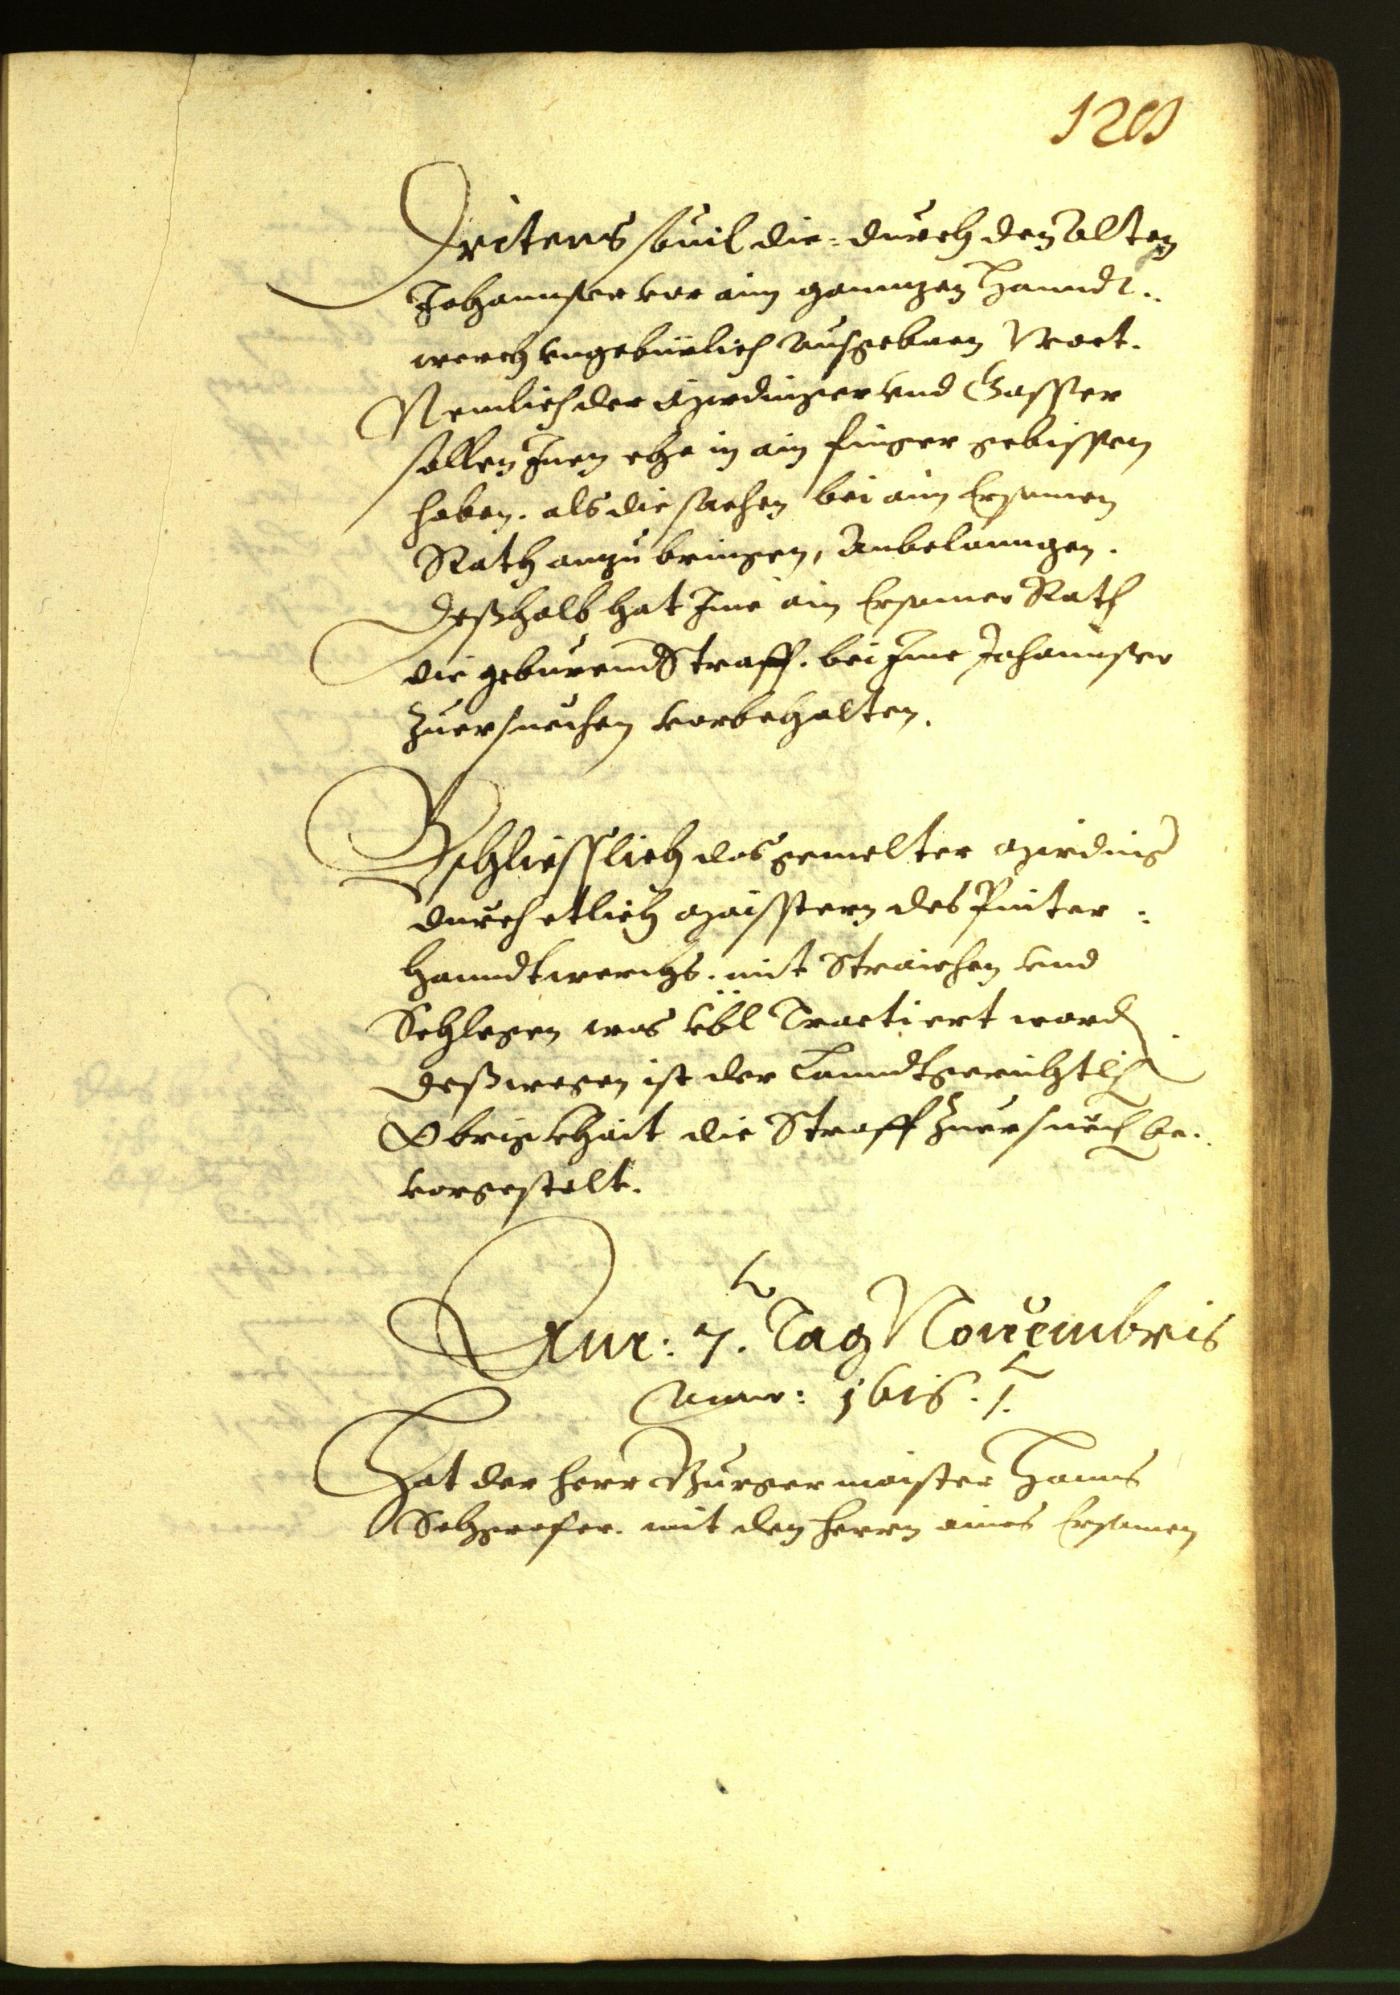 Dritens souil die: durch den Alten
Johannser vor aim gannzen Hanndt:
werch vngebürlich Ausgebnen Wort.
Nemlich der Gerdinger vnd Gasser
sollen Inen ehe in ain finger gebissen
haben. als die sachen bei aim Ersamen
Rath anzubringen, Anbelanngen.
Deßhalb hat Ime ain Ersamer Rath
die geburennd Straff. bei Ime Johannser
Zuersuechen vorbehalten.
Beschliesslich das gemelter
durch etlich Maistern des Pinter:
Hanndtwerchs. mit Straichen vnd
Schlegen was vbl Tractiert word
Deßwegen ist der Lanndtgerichtl
Obrigkhait die Straff Zuersuech be:
vorgestelt.
Den: 7. Tag Nouembris
Anno: 1616.
Hat der herr Burgermaister Hanns
mit den herrn aines Ersamen